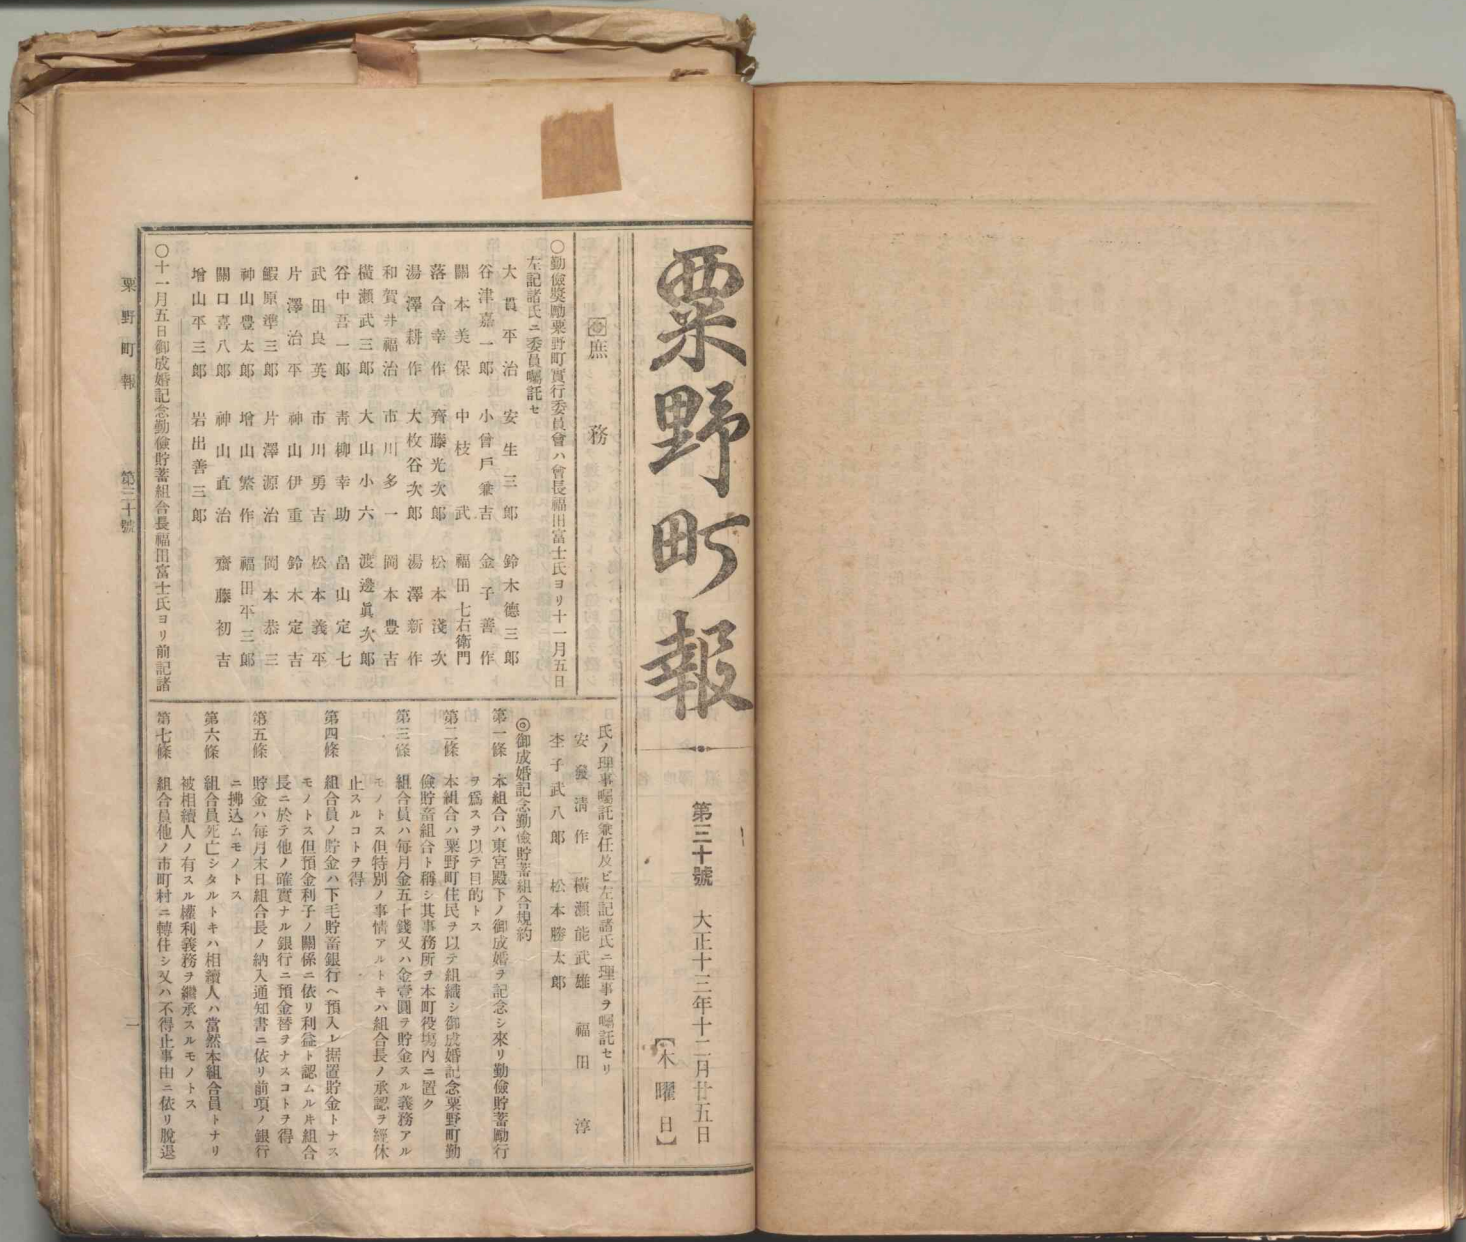 粟野町報
第三十號 大正十三年十二月廿五日
【木曜日】
庶務
〇勤儉奬勵粟野町實行委員會ハ會長福田富士氏ヨリ十一月五日
左記諸氏ニ委員囑託セ
大貫平治 安生三郎 鈴木德三郎
谷津嘉一郎 小曾戶兼吉 金子善作
關本美保 中枝武 福田七右衛門
落合幸作 齊藤光次郎 松本淺次
湯澤耕作 大枚谷次郎 湯澤新作
和賀井福治 市川多一 岡本豊吉
橫瀨武三郎 大山小六 渡邊眞次郎
谷中吾一郎 靑柳幸助 畠山定七
武田良英 市川勇吉 松本義平
片澤治平 神山伊重 鈴木定吉
鰕原準三郎 片澤源治 岡本恭三
神山豊太郎 增山繁作 福田平三郎
關口喜八郎 神山直治 齋藤初吉
增山平三郎 岩出善三郎
〇十一月五日御成婚記念勤儉貯蓄組合長福田富士氏ヨリ前記諸
氏ノ理事囑託兼任及ビ左記諸氏ニ理事ヲ囑託セリ
安發淸作 橫瀨能武雄 福田淳
杢子武八郎 松本勝太郎
◎御成婚記念勤儉貯蓄組合規約
第一條 本組合ハ東宮殿下ノ御成婚ヲ記念シ來リ勤儉貯蓄勵行
ヲ爲スヲ以テ目的トス
第二條 本組合ハ粟野町住民ヲ以テ組織シ御成婚記念粟野町勤
儉貯蓄組合ト稱シ其事務所ヲ本町役塲內ニ置ク
第三條 組合員ハ每月金五十錢又ハ金壹圓ヲ貯金スル義務アル
モノトス但特別ノ事情アルトキハ組合長ノ承認ヲ經休
止スルコトヲ得
第四條 組合員ノ貯金ハ下毛貯蓄銀行ヘ預入レ据置貯金トナス
モノトス但預金利子ノ關係ニ依リ利益ト認ムル片組合
長ニ於テ他ノ確實ナル銀行ニ預金替ヲナスコトヲ得
第五條 貯金ハ每月末日組合長ノ納入通知書ニ依リ前項ノ銀行
ニ拂込ムモノトス
第六條 組合員死亡シタルトキハ相續人ハ當然本組合員トナリ
被相續人ノ有スル權利義務ヲ繼承スルモノトス
第七條 組合員他ノ市町村ニ轉住シ又ハ不得止事由ニ依リ脫退
粟野町報 第三十號 一